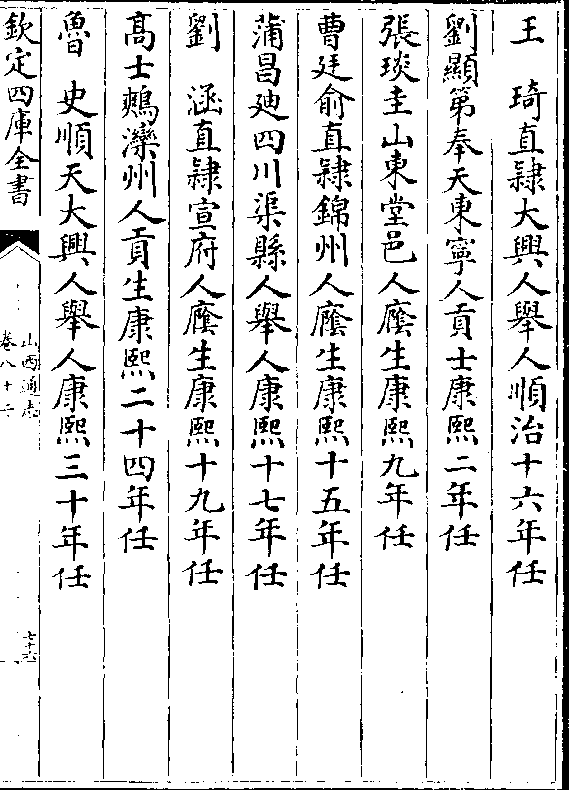 王　琦直隸大興人舉人順治十六年任
劉顯第奉天東寧人貢士康熙二年任
張琰圭山東堂邑人廕生康熙九年任
曹廷俞直隸錦州人廕生康熙十五年任
蒲昌廸四川渠縣人舉人康熙十七年任
劉　涵直隸宣府人廕生康熙十九年任
高士鶼灤州人貢生康熙二十四年任
魯　史順天大興人舉人康熙三十年任
欽定四庫全書
山西通志
卷八十二
七十六